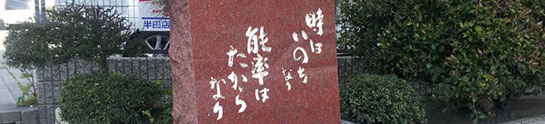 時は
いのち
なり
能率は
たから
なり
半田店